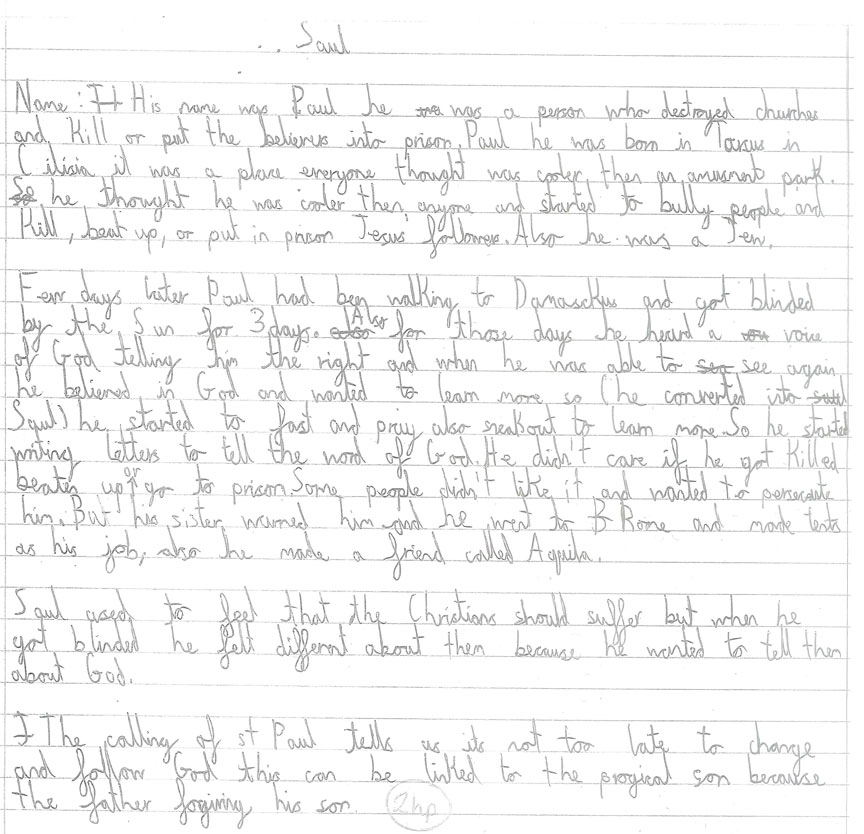 Saul
Name: His name was Paul he was a person who destroyed churches
and Kill or put the believers into prison. Paul he was born in Tarsus in
Cilisia it was a place everyone thought was cooler then an amusment park.
So he thought he was cooler then anyone and started to bully people and
Kill, beat up, or put in prison Jesus' followers. Also he was a Jew.
Few days later Paul had been walking to Damasckus and got blinded
by the Sun for 3 days. Also for those days he heard a voice
of God telling him the right and when he was able to see again
he believed in God and wanted to learn more so (he converted into
Saul) he started to fast and pray also sneakout to learn more. So he started
writing letters to tell the word of God. He didn't care if he got Killed
beaten up or go to prison. Some people didn't like it and wanted to persecute
him. But his sister warned him and he went to Rome and made tents
as his job, also he made a friend called Aquila.
Saul used to feel that the Christians should suffer but when he
got blinded he felt different about them because he wanted to tell them
about God.
The calling of st Paul tells us its not too late to change
and follow God this can be linked to the progical son because
the father forgiving his son. 2hp